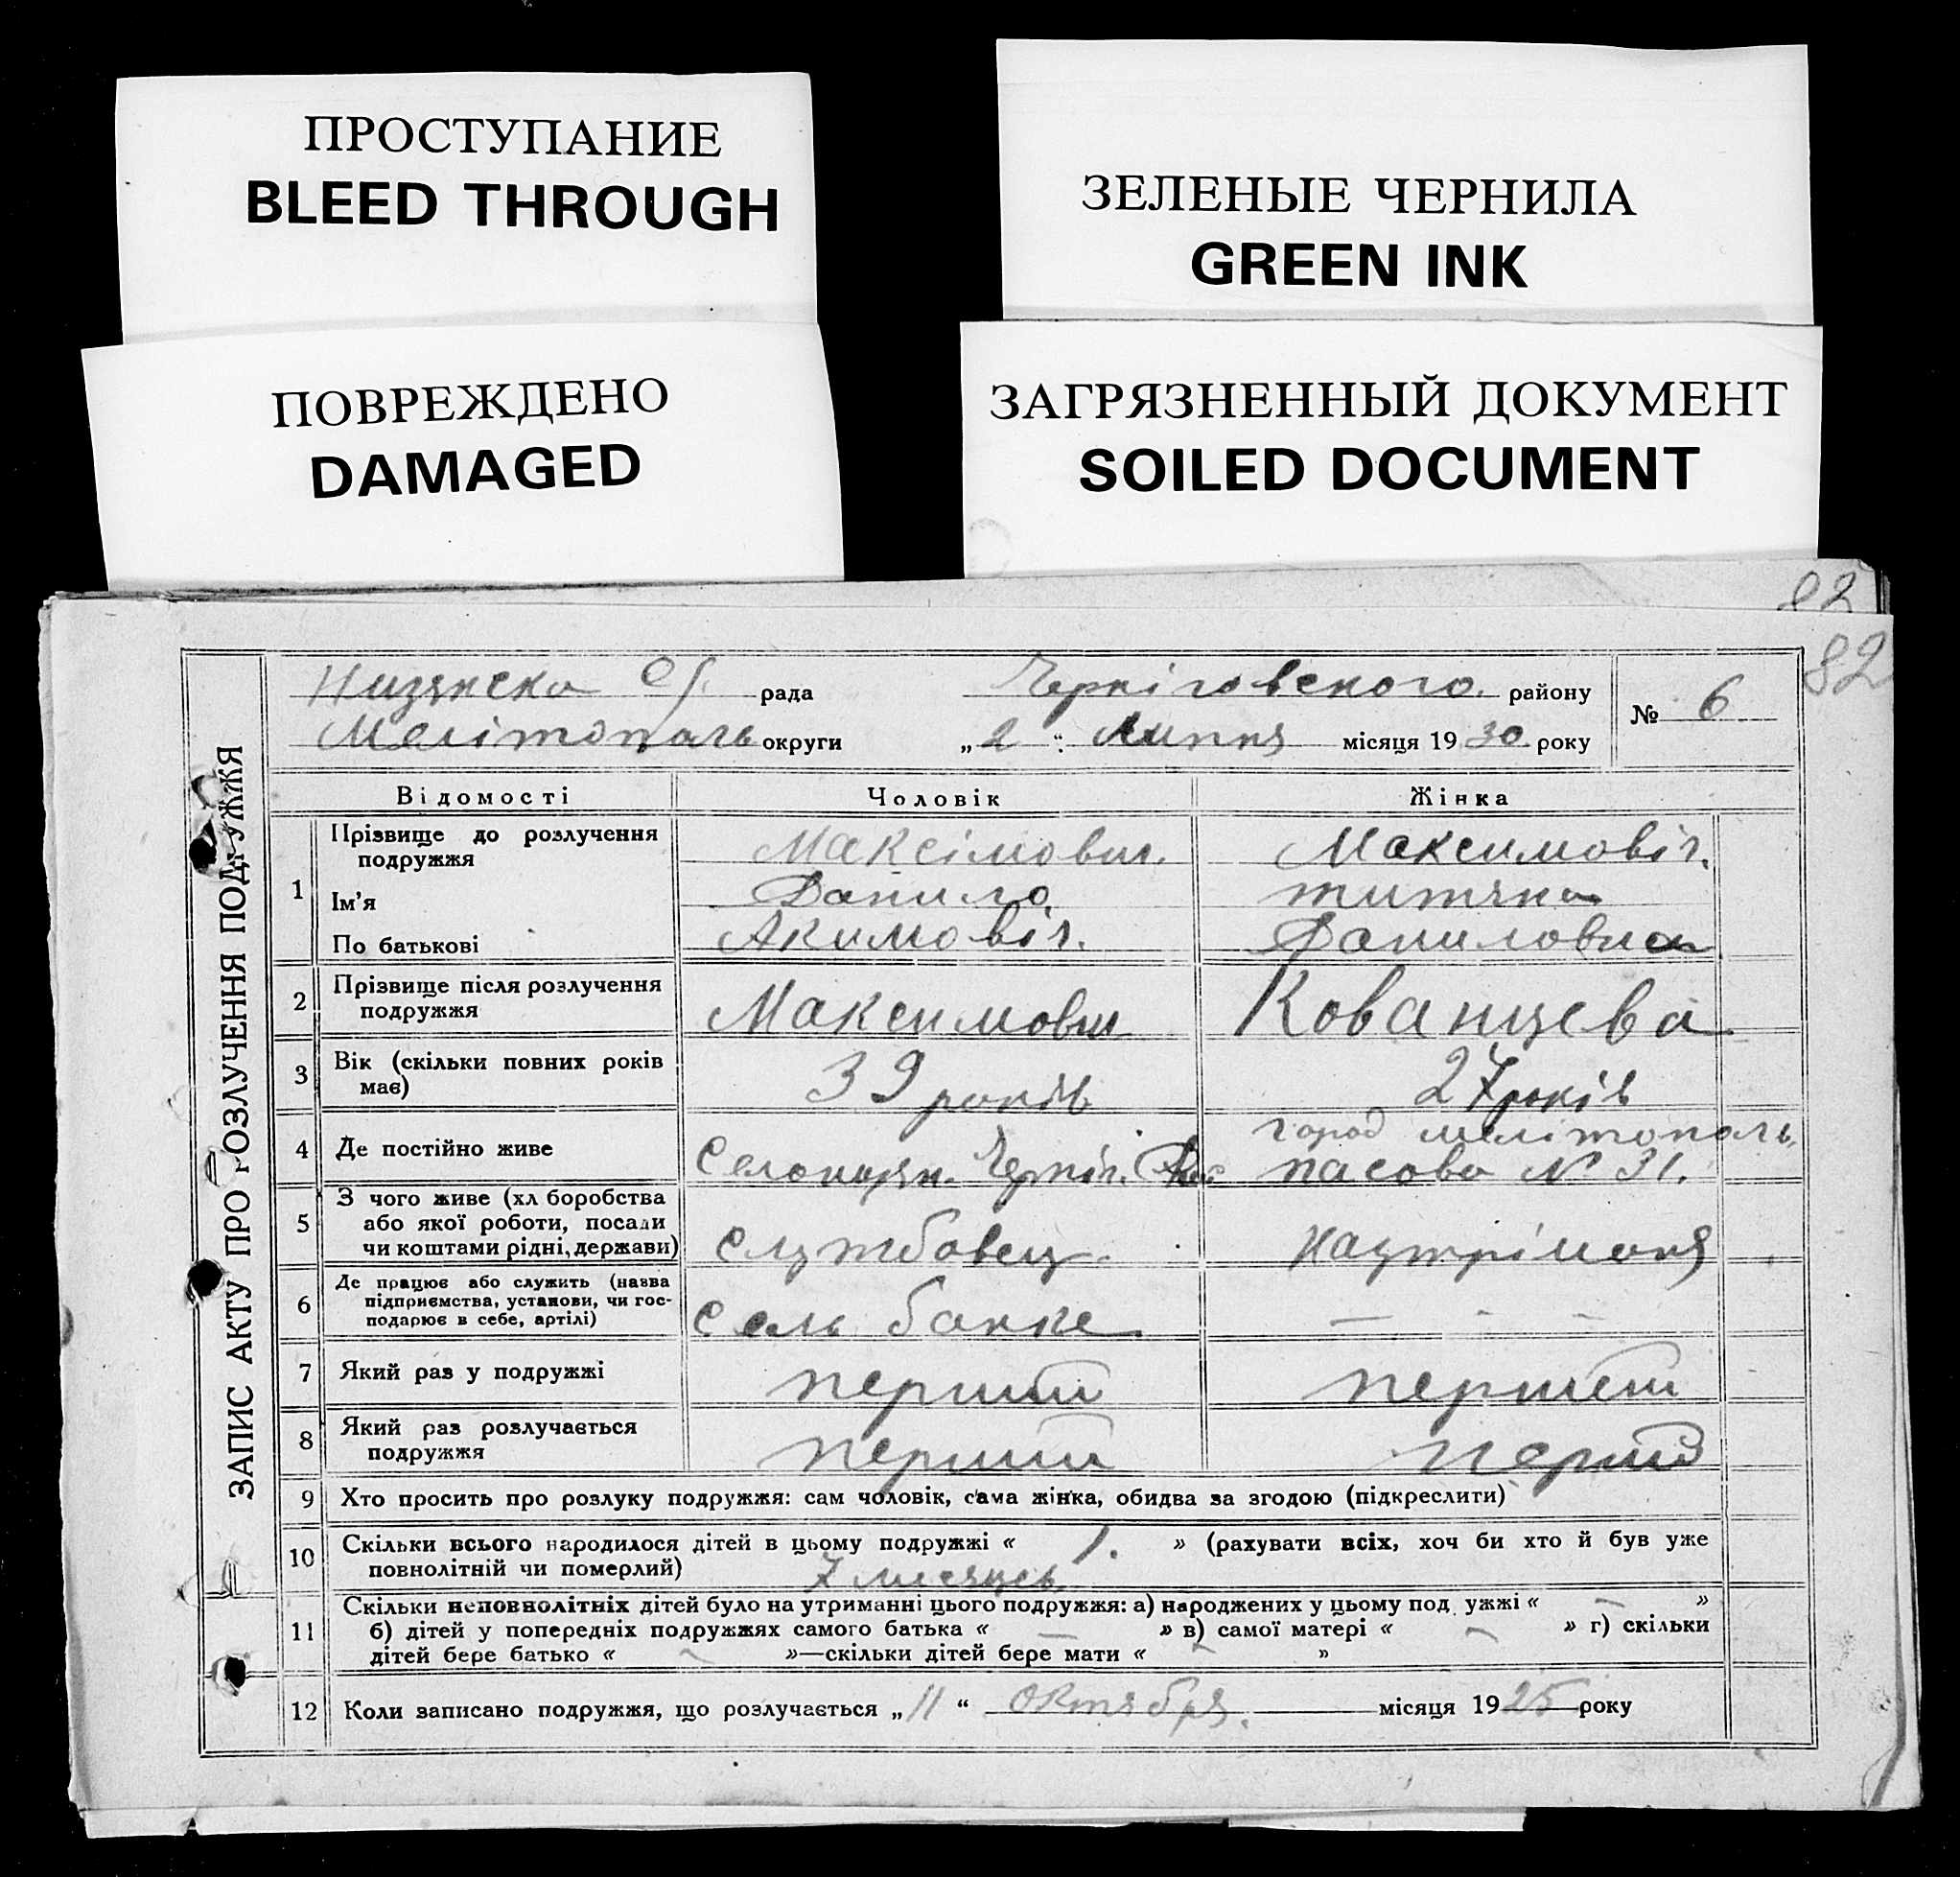 ПРОСТУПАНИЕ
BLEED THROUGH
ЗЕЛЕНЫЕ ЧЕРНИЛА
GREEN INK
ПОВРЕЖДЕНО
DAMAGED
ЗАГРЯЗНЕННЫЙ ДОКУМЕНТ
SOILED DOCUMENT
82
82
ЗАПИС АКТУ ПРО РОЗЛУЧЕННЯ ПОДРУЖЖЯ
рада Черніговского району
Мелітополь округи „2“ Липня місяця 1930 року
№ 6
Відомості Чоловік Жінка
1 Прізвище до розлучення подружжя Максімович. Максимовіч.
Ім'я Данило. титяна
По батькові Акимовіч. Даниловна
2 Прізвище після розлучення подружжя Максимович Кованцева
3 Вік (скільки повних років має) 39 років 27 років
город мелітополь
4 Де постійно живе Черніг. пасова № 31.
5 З чого живе (хл боробства
або якої роботи, посади
чи коштами рідні, держави) Службовец.
6 Де працює або служить (назва
підприємства, установи, чи гос-
подарює в себе, артілі) Сель банке — - –
7 Який раз у подружжі перший перший
8 Який раз розлучається подружжя перший перший
9 Хто просить про розлуку подружжя: сам чоловік, сама жінка, обидва за згодою (підкреслити)
10 Скільки всього народилося дітей в цьому подружжі « 1. » (рахувати всіх, хоч би хто й був уже
повнолітній чи померлий) 7 месяцев.
11 Скільки неповнолітніх дітей було на утриманні цього подружжя: а) народжених у цьому под ужжі « — »
б) дітей у попередніх подружжях самого батька « — » в) самої матері « — » г) скільки
дітей бере батько « — »—скільки дітей бере мати « — »
12 Коли записано подружжя, що розлучається „11“ октября. місяця 1925 року